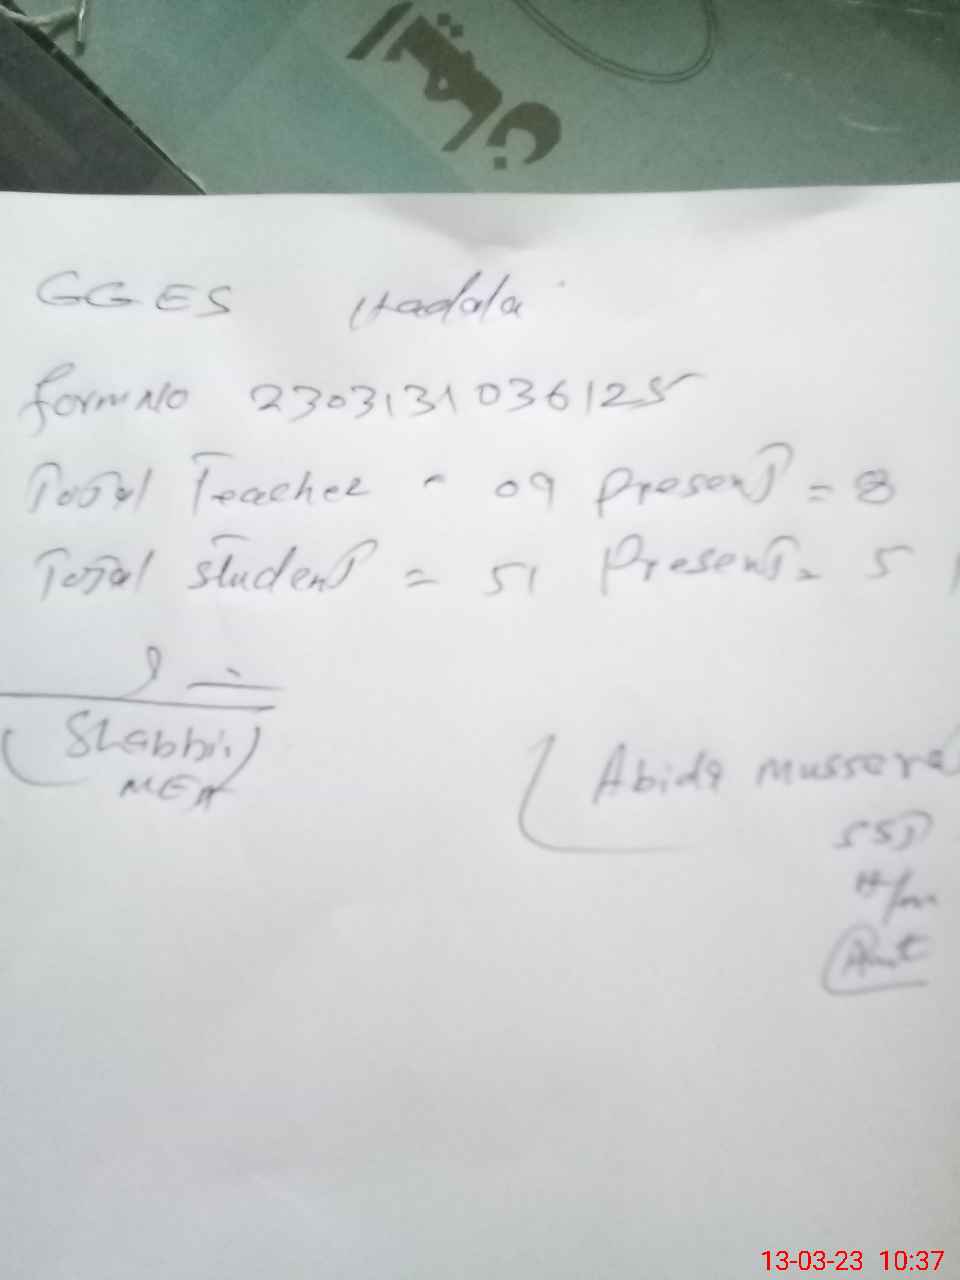 القرآن
GGES Hadala
form No 2303131036125
Total Teacher = 09 Present = 8
Total student = 51 Present = 5
(Shabbir)
MEA
Abida
SST
H/m
13-03-23 10:37